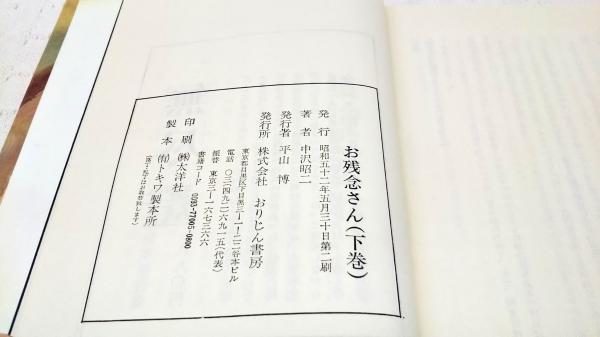 お残念さん(下巻)
発行 昭和五十二年五月三十日第二刷
著者 中沢昭二
発行者 平山 博
発行所 株式会社 おりじん書房
東京都目黒区下目黒三―一―二二谷本ビル
電話 〇三(四九二)六九一五(代表)
振替 東京三―一六七三六六
書籍コード 0093-77005-0800
印刷 ㈱太洋社
製本 ㈲トキワ製本所
(落丁・乱丁はお取替致します)